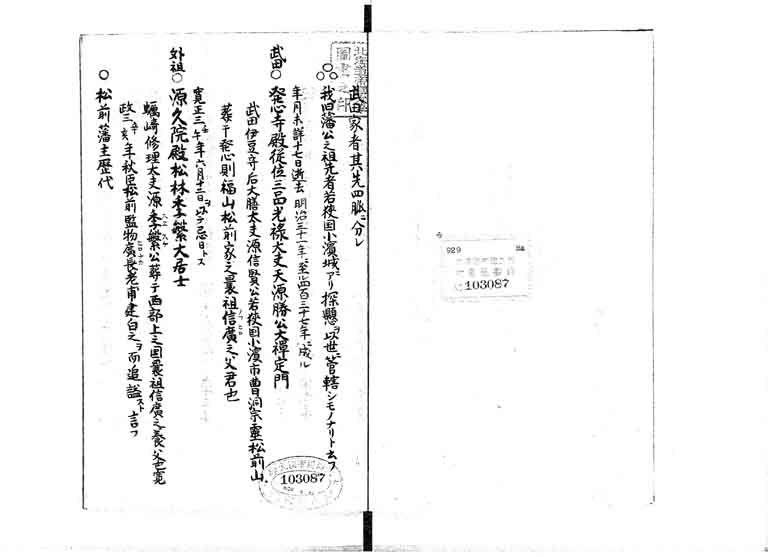 武田家者其先四脈ニ分レ
我旧藩公之祖先者若狹国小濱城ニアリ探題ヲ以世ニ管轄シモノナリト云フ
年月未詳十七日逝去 明治三十一年ニ至ル四百三十七年ニ成ル
武田○発心寺殿従位三品光禄大夫天源勝公大禅定門
武田伊豆守后大膳太夫源信賢公若狹国小濱市曹洞宗霊松前山
葬干発心則福山松前家之曩祖信廣之父君也
寛正三午年六月十二日ヲ以テ忌日トス
外祖○源久院殿松林季繁大居士
蠣崎修理大夫源季繁公葬于西部上之国曩祖信廣之養父也寛
政三亥年秋臣松前監物廣長老甫建白之ヲ而追謚スト言フ
○松前藩主歴代
圖書之印
103087
929
103087